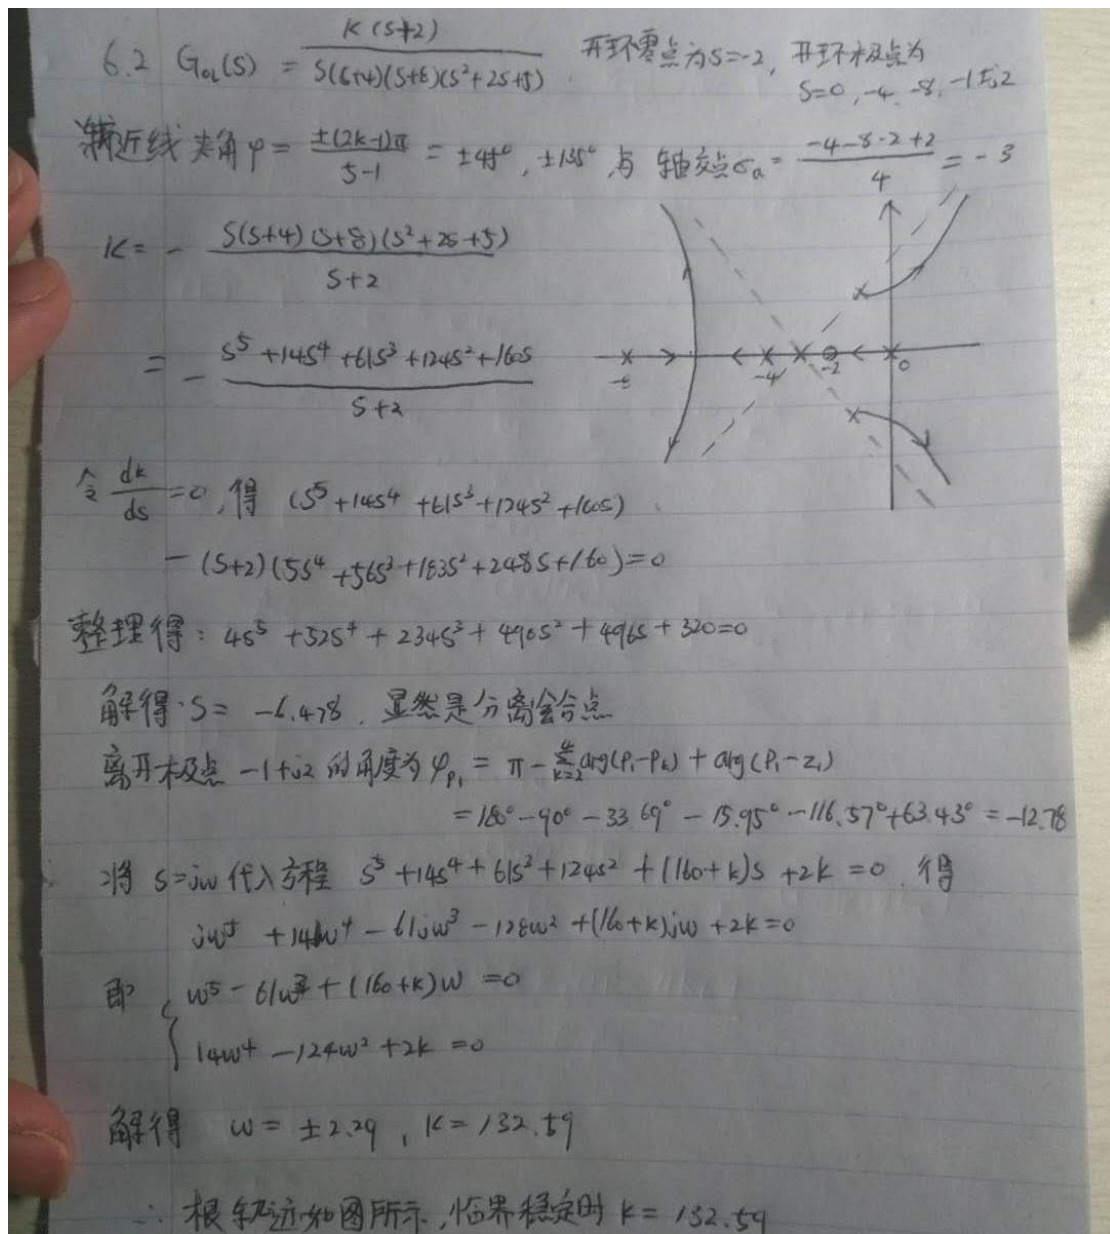 6.2 G_{OL}(s) = \frac{K(s+2)}{s(s+4)(s+8)(s²+2s+5)} 开环零点为s=-2, 开环极点为
s=0, -4, -8, -1±j2
渐近线夹角φ = \frac{±(2k-1)π}{5-1} = ±45°, ±135°, 与 轴交点σ_a = \frac{-4-8-2+2}{4} = -3
K = - \frac{s(s+4)(s+8)(s²+2s+5)}{s+2}
= - \frac{s⁵+14s⁴+61s³+124s²+160s}{s+2}
-8 -4 -2 0
令 \frac{dk}{ds} = 0, 得 (s⁵+14s⁴+61s³+124s²+160s)
- (s+2)(5s⁴+56s³+183s²+248s+160)=0
整理得: 4s⁵+52s⁴+234s³+490s²+496s+320=0
解得 s = -6.478, 显然是分离会合点
离开极点 -1+j2 的角度为 φ_{p₁} = π - \sum_{k=2}^{4} arg(p₁-p_k) + arg(p₁-z₁)
= 180° - 90° - 33.69° - 15.95° - 116.57° + 63.43° = -12.78
将 s=jω 代入方程 s⁵+14s⁴+61s³+124s²+(160+k)s+2k=0 得
jω⁵+14ω⁴-61jω³-128ω²+(160+k)jω+2k=0
即 { ω⁵-61ω³+(160+k)ω=0
14ω⁴-124ω²+2k=0
解得 ω = ±2.29, K = 132.59
∴ 根轨迹如图所示, 临界稳定时 K = 132.59